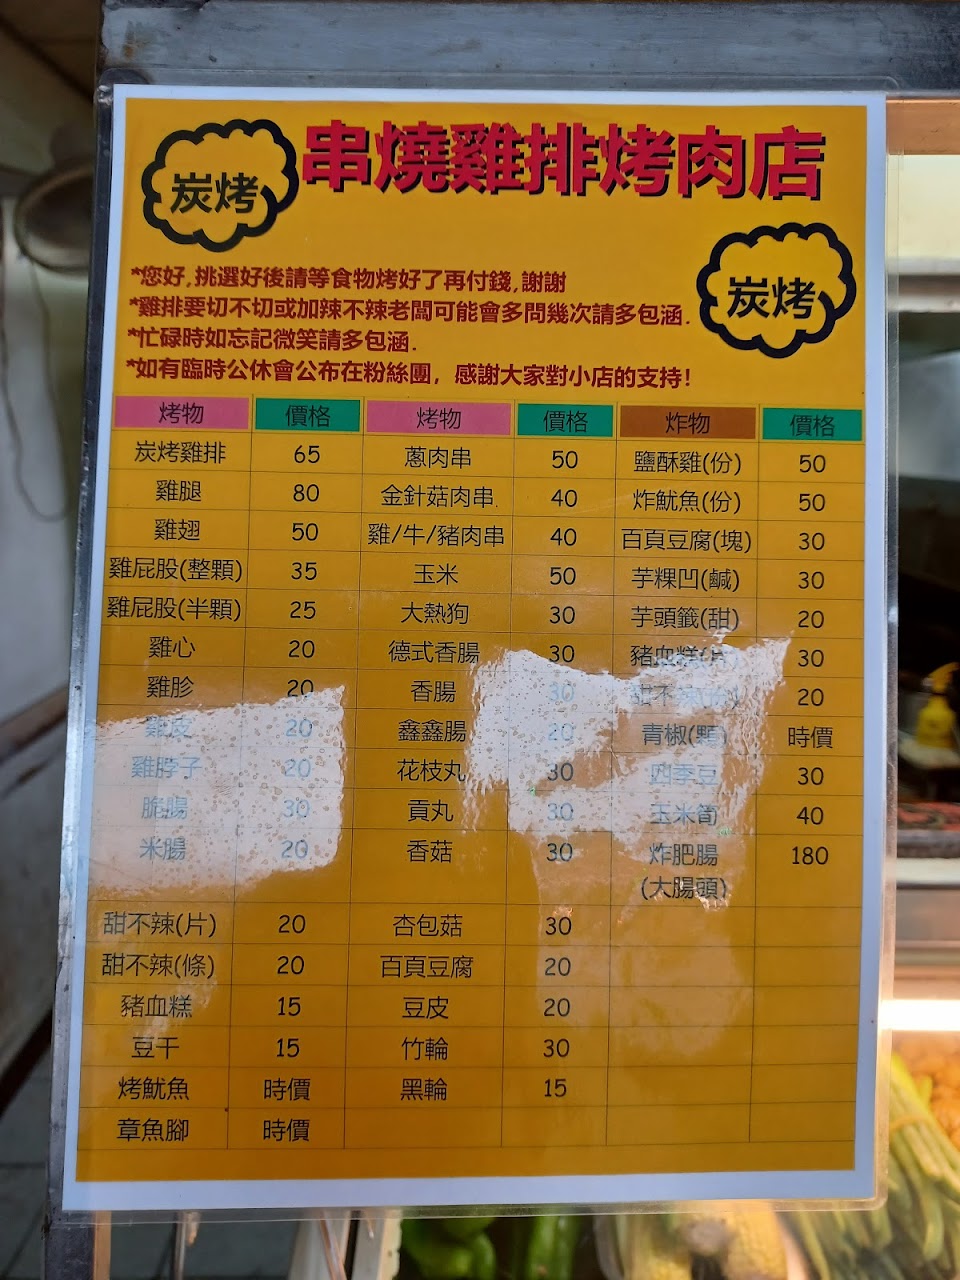 炭烤
串燒雞排烤肉店
炭烤
*您好,挑選好後請等食物烤好了再付錢,謝謝
*雞排要切不切或加辣不辣老闆可能會多問幾次請多包涵.
*忙碌時如忘記微笑請多包涵.
*如有臨時公休會公布在粉絲團，感謝大家對小店的支持!
烤物 價格 烤物 價格 炸物 價格
炭烤雞排 65 蔥肉串 50 鹽酥雞(份) 50
雞腿 80 金針菇肉串 40 炸魷魚(份) 50
雞翅 50 雞/牛/豬肉串 40 百頁豆腐(塊) 30
雞屁股(整顆) 35 玉米 50 芋粿凹(鹹) 30
雞屁股(半顆) 25 大熱狗 30 芋頭籤(甜) 20
雞心 20 德式香腸 30 豬血糕(片) 30
雞胗 20 香腸 30 甜不辣(份) 20
雞皮 20 鑫鑫腸 20 青椒(顆) 時價
雞脖子 20 花枝丸 30 四季豆 30
脆腸 30 貢丸 30 玉米筍 40
米腸 20 香菇 30 炸肥腸 180
(大腸頭)
甜不辣(片) 20 杏包菇 30
甜不辣(條) 20 百頁豆腐 20
豬血糕 15 豆皮 20
豆干 15 竹輪 30
烤魷魚 時價 黑輪 15
章魚腳 時價